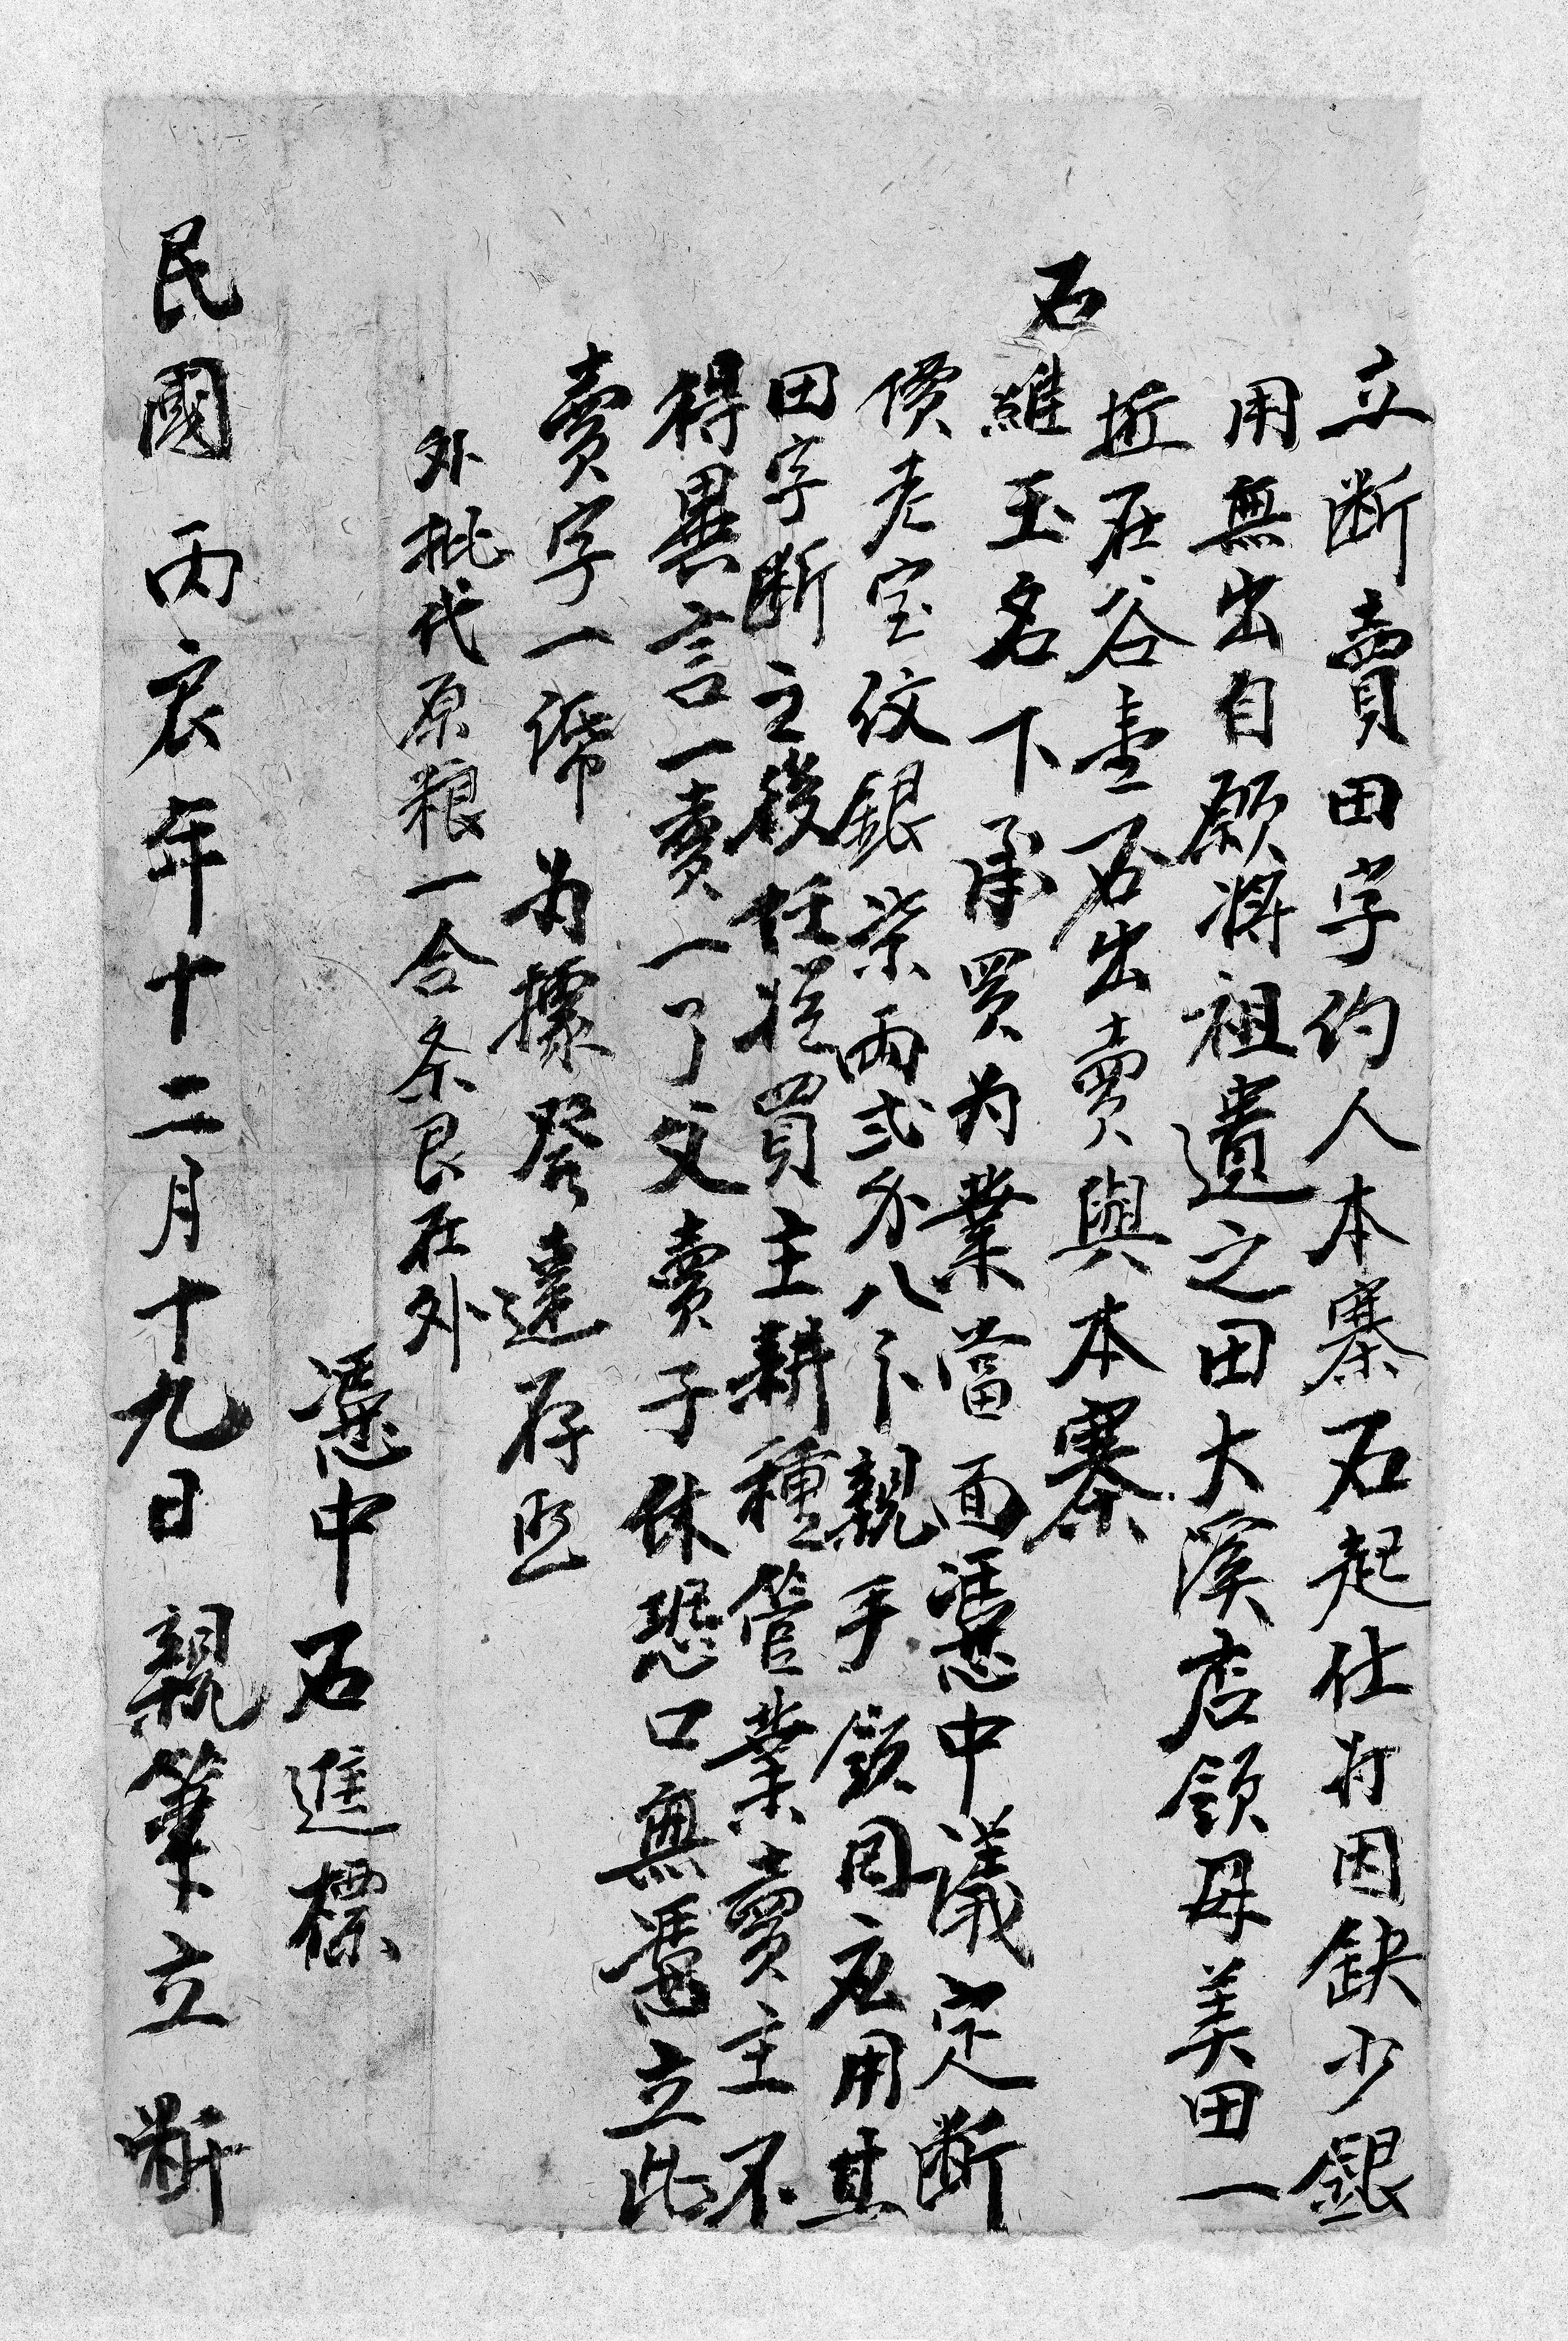 立断賣田字约人本寨石起仕村因缺少銀
用無出自愿将祖遺之田大溪店領毋美田一
坵在谷壹石出賣與本寨
石維玉名下承買为業當面憑中議定断
價老宝紋銀柒両弍分八卜親手領囬应用其
田字断之後任從買主耕種管業賣主不
得異言一賣一了父賣子休恐口無憑立此
賣字一㡧为據發達存照
外批代原粮一合条艮在外
憑中石進標
民國丙辰年十二月十九日親筆立断